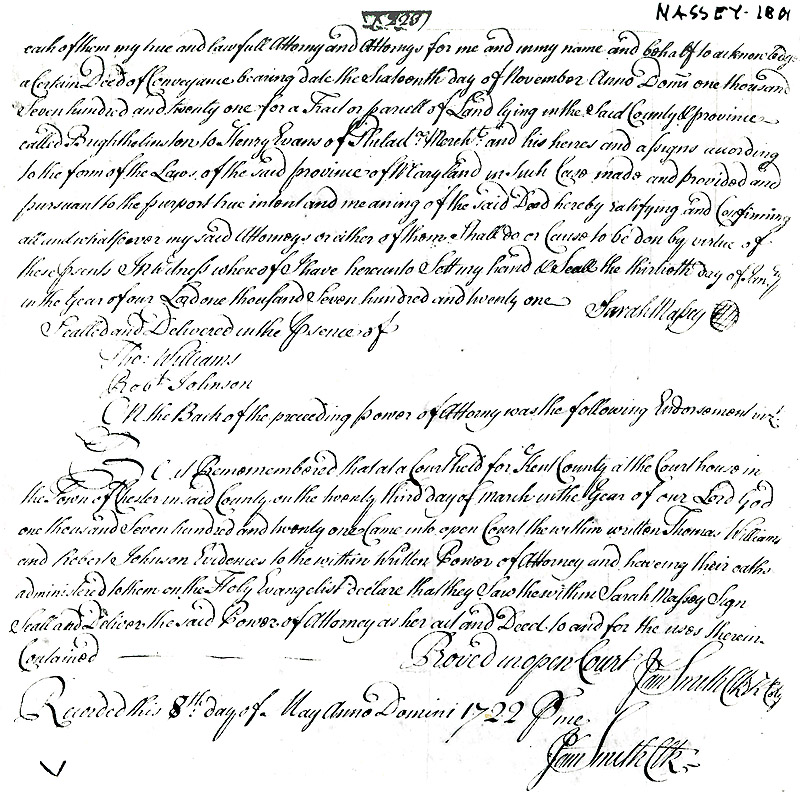 (220)
MASSEY - 180
each of them my true and lawfull Attorny and Attornys for me and in my name and behalf to acknowledge
a Certain Deed of Conveyance bearing date the Sixteenth day of November Anno Dom̃ one thousand
Seven hundred and twenty one for a Tract or parcell of Land lying in the Said County & province
called Brighthelmston to Henry Evans of Philada Mercht and his heres and assigns according
to the form of the Laws of the said province of Maryland in Such Case made and provided and
pursuant to the purport true intent and meaning of the said Deed hereby ratifying and Confirming
all and whatsoever my said Attorneys or either of them Shall do or Cause to be don by virtue of
these psents In Witness whereof I have hereunto Sett my hand & Seall the thirtieth day of Janry
in the Year of our Lord one thousand Seven hundred and twenty one Sarah Massey
Sealled and Delivered in the psence of
Tho: Williams
Robt Johnson
On the Back of the preceding power of Attorny was the following Endorsement vizt
Be it Rememembered that at a Court held for Kent County at the Court house in
the Town of Chester in said County on the twenty third day of march in the Year of our Lord God
one thousand Seven hundred and twenty one Came into open Court the within written Thomas Williams
and Robert Johnson Evidences to the within Written Power of Attorney and haveing their oaths
administered to them on the Holy Evangelist declare that they Saw the within Sarah Massey Sign
Seall and Deliver the said Power of Attorney as her act and Deed to and for the uses therein
Contained Proved in open Court Jam Smith Clk
Recorded this 8th day of May Anno Domini 1722 P me
Jam Smith Clk